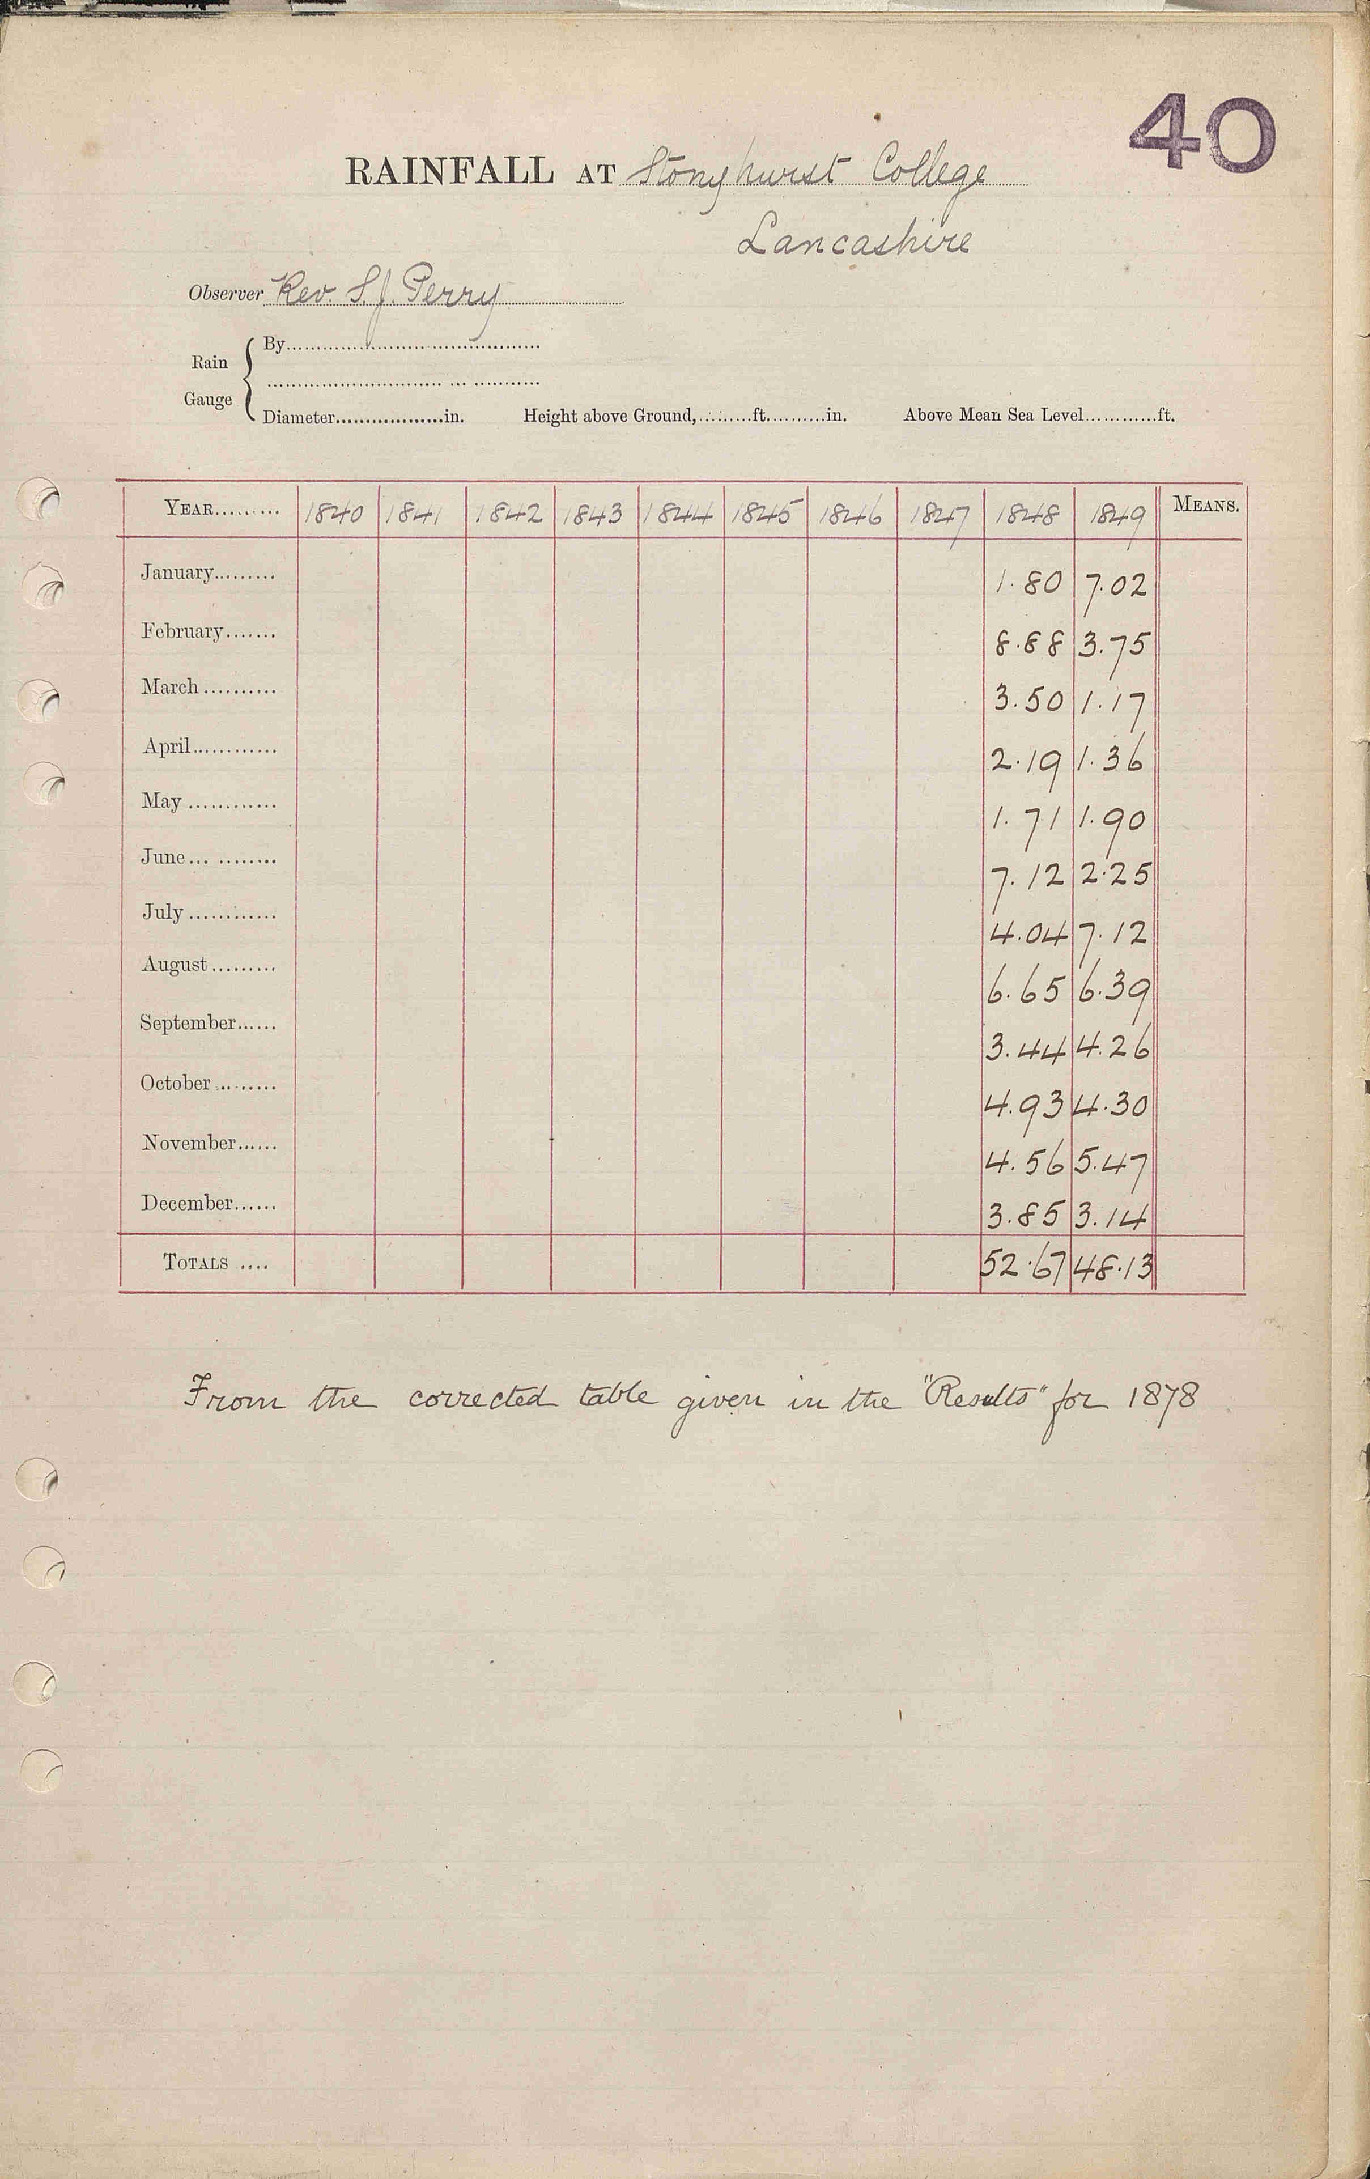 40
RAINFALL AT Stonyhurst College
Lancashire
Observer Rev. S.J. Perry
Rain Gauge { By
Diameter..................in. Height above Ground,.........ft..........in. Above Mean Sea Level............ft.
YEAR......... 1840 1841 1842 1843 1844 1845 1846 1847 1848 1849 MEANS.
January......... 1.80 7.02
February....... 8.88 3.75
March.......... 3.50 1.17
April............ 2.19 1.36
May............ 1.71 1.90
June... ........ 7.12 2.25
July............ 4.04 7.12
August......... 6.65 6.39
September...... 3.44 4.26
October......... 4.93 4.30
November...... 4.56 5.47
December...... 3.85 3.14
TOTALS .... 52.67 48.13
From the corrected table given in the "Results" for 1878